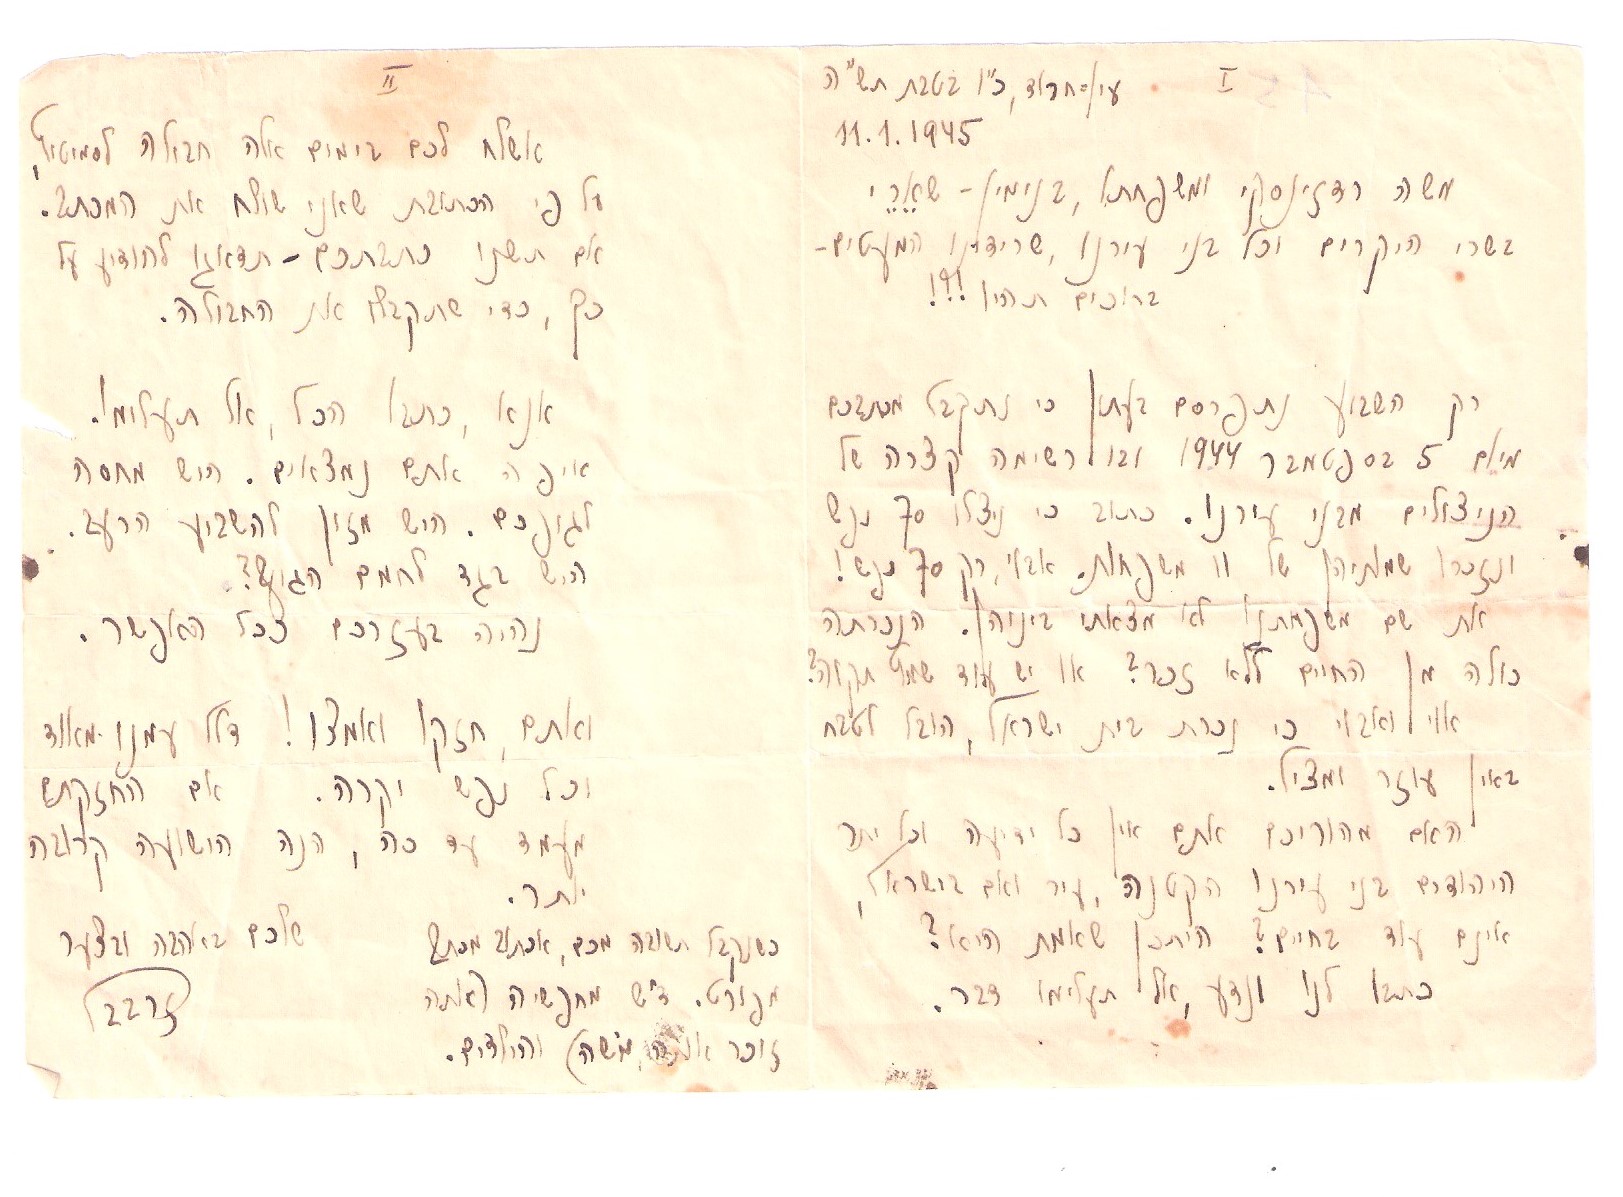 I
עין-חרוד, כ"ו בטבת תש"ה
11.1.1945
משה רדזינסקי ומשפחתו, בנימין - שְׁאֵרֵי
בשרי היקרים וכל בני עירנו, שרידינו המעטים -
ברוכים תהיו !!!
רק השבוע נתפרסם בעתון כי נתקבל מכתבכם
מיום 5 בספטמבר 1944 ובו רשימה קצרה של
הניצולים מבני עירנו. כתוב כי ניצלו 70 נפש
ונזכרו שמותיהן של 11 משפחות. אבוי, רק 70 נפש!
את שם משפחתנו לא מצאתי ביניהן. הנכרתה
כולה מן החיים ללא זכר? או יש עוד שמץ תקוה?
אוי ואבוי כי נכרת בית ישראל, הובל לטבח
באין עוזר ומציל.
האם מהוריכם אתם אין כל ידיעה וכל יתר
היהודים בני עירנו הקטנה, עיר ואם בישראל,
אינם עוד בחיים? היתכן שאמת היא?
כתבו לנו ונדע, אל תעלימו דבר.
II
אשלח לכם בימים אלה חבילה
על פי הכתובת שאני שולח את המכתב.
אם תשנו כתבתכם - תדאגו להודיע על
כך, כדי שתקבלו את החבילה.
אנא, כתבו הכל, אל תעלימו.
איפה אתם נמצאים. היש מחסה
לגופכם. היש מזון להשביע הרעב.
היש בגד לחמם הגוף?
נהיה בעזרכם ככל האפשר.
ואתם, חזקו ואמצו! דלל עמנו מאוד
וכל נפש יקרה. אם החזקתם
מעמד עד כה, הנה הישועה קרובה
יותר.
כשנקבל תשובה מכם, אכתוב מכתב
מפורט. ד"ש מחפשיה (אתה
זוכר אותה, משה) והילדים.
שלכם באהבה ובצער
זרבבל